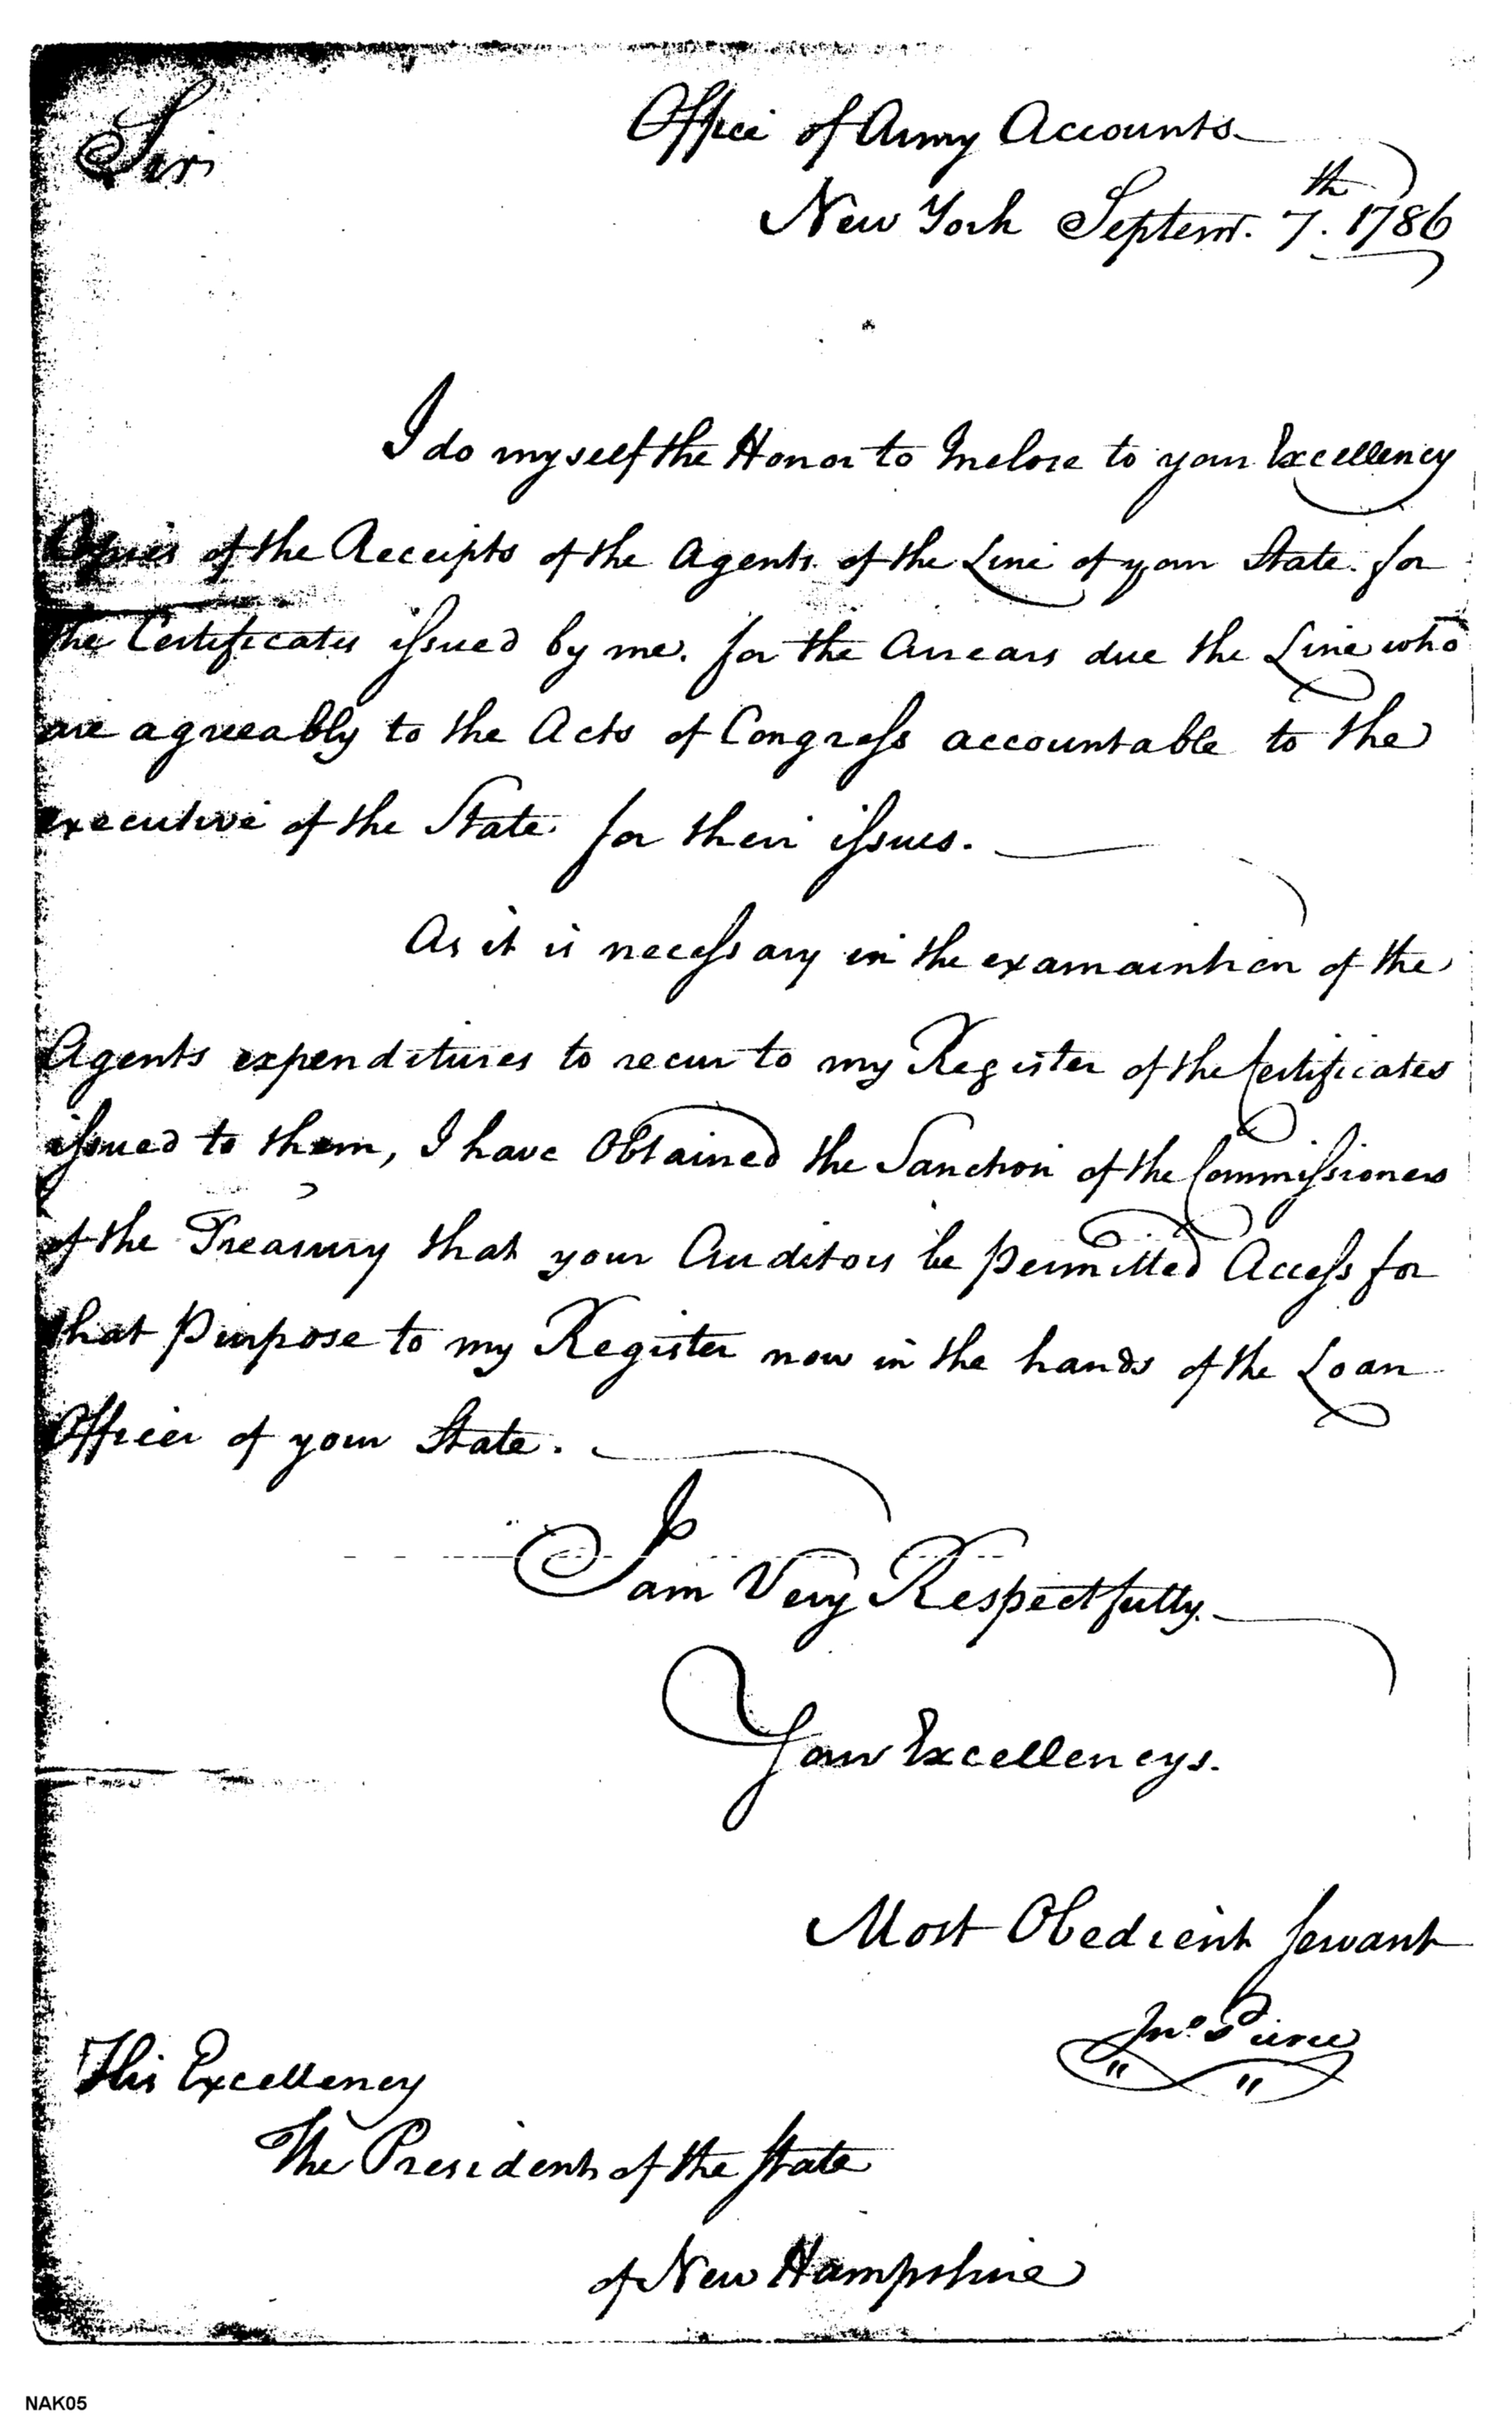 Office of Army Accounts
Sir
New York Septemr. 7th. 1786
I do myself the Honor to Inclose to your Excellency
Copies of the Receipts of the Agents of the Line of your State for
the Certificates issued by me. for the Arrears due the Line who
are agreeably to the Acts of Congress accountable to the
executive of the State for their issues.
As it is necessary in the examaintion of the
Agents expenditures to recur to my Register of the Certificates
issued to them, I have Obtained the Sanction of the Commissioners
of the Treasury that your Auditors be permitted Access for
that Purpose to my Register now in the hands of the Loan
Officer of your State.
I am Very Respectfully.
Your Excellencys.
Most Obedient Servant
Jno Pierce
His Excellency
The President of the State
of New Hampshire
NAK05